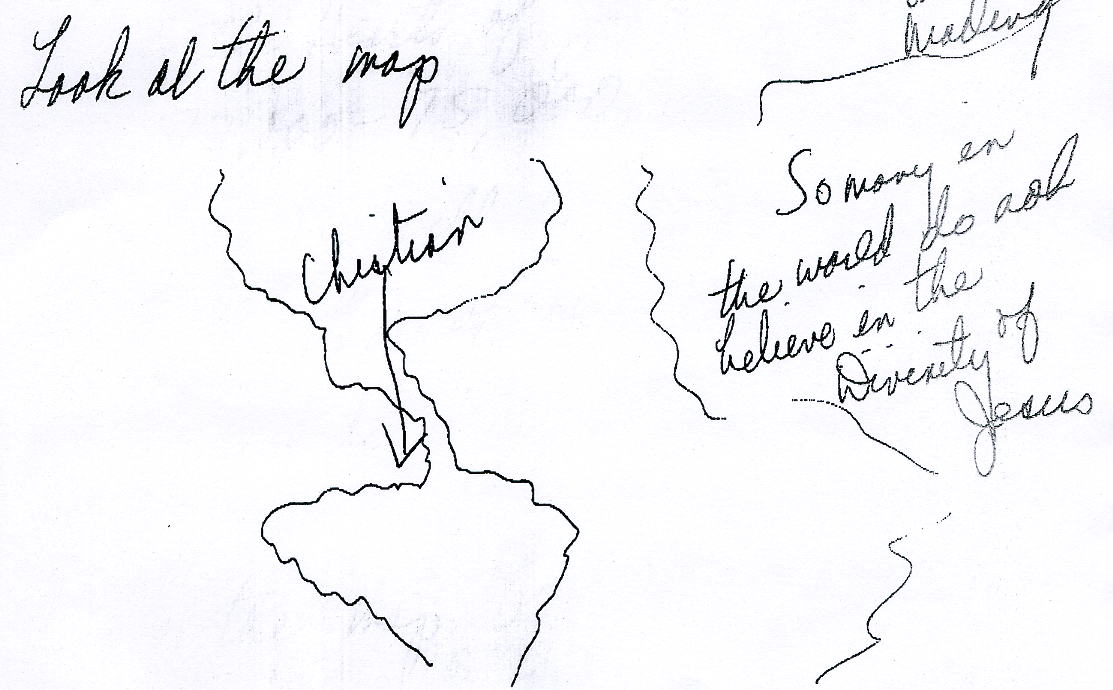 Look at the map
Christian
So many in
the world do not
believe in the
Divinity of
Jesus